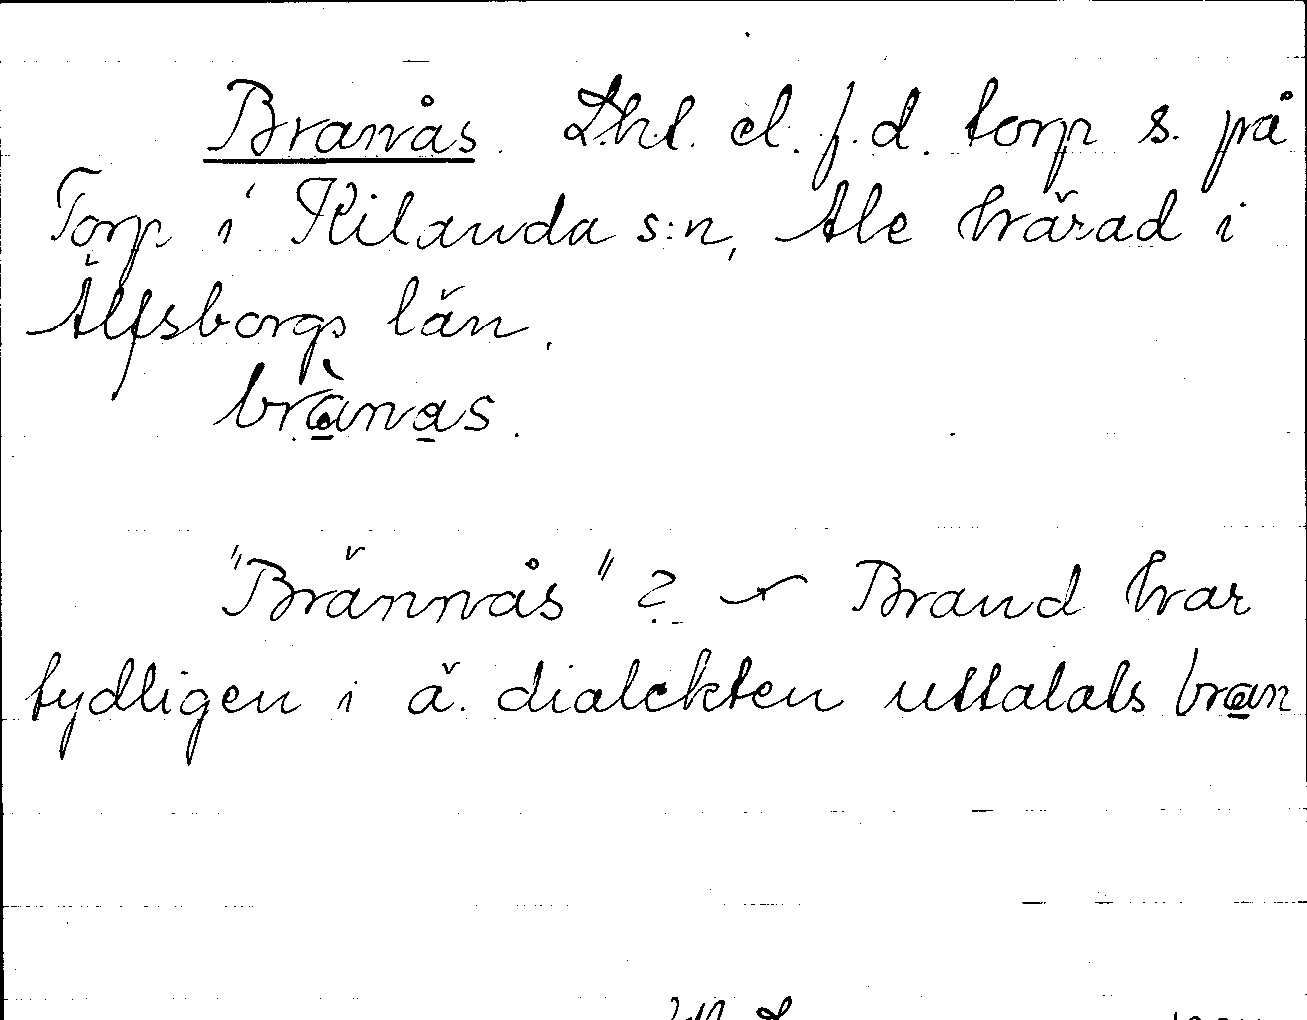 Branås. Lht. el. f.d. torp s. på
Torp i Kilanda s:n, Ale härad i
Älfsborgs län.
brànas.
"Brännås"? – Brand har
tydligen i ä. dialekten uttalats bran